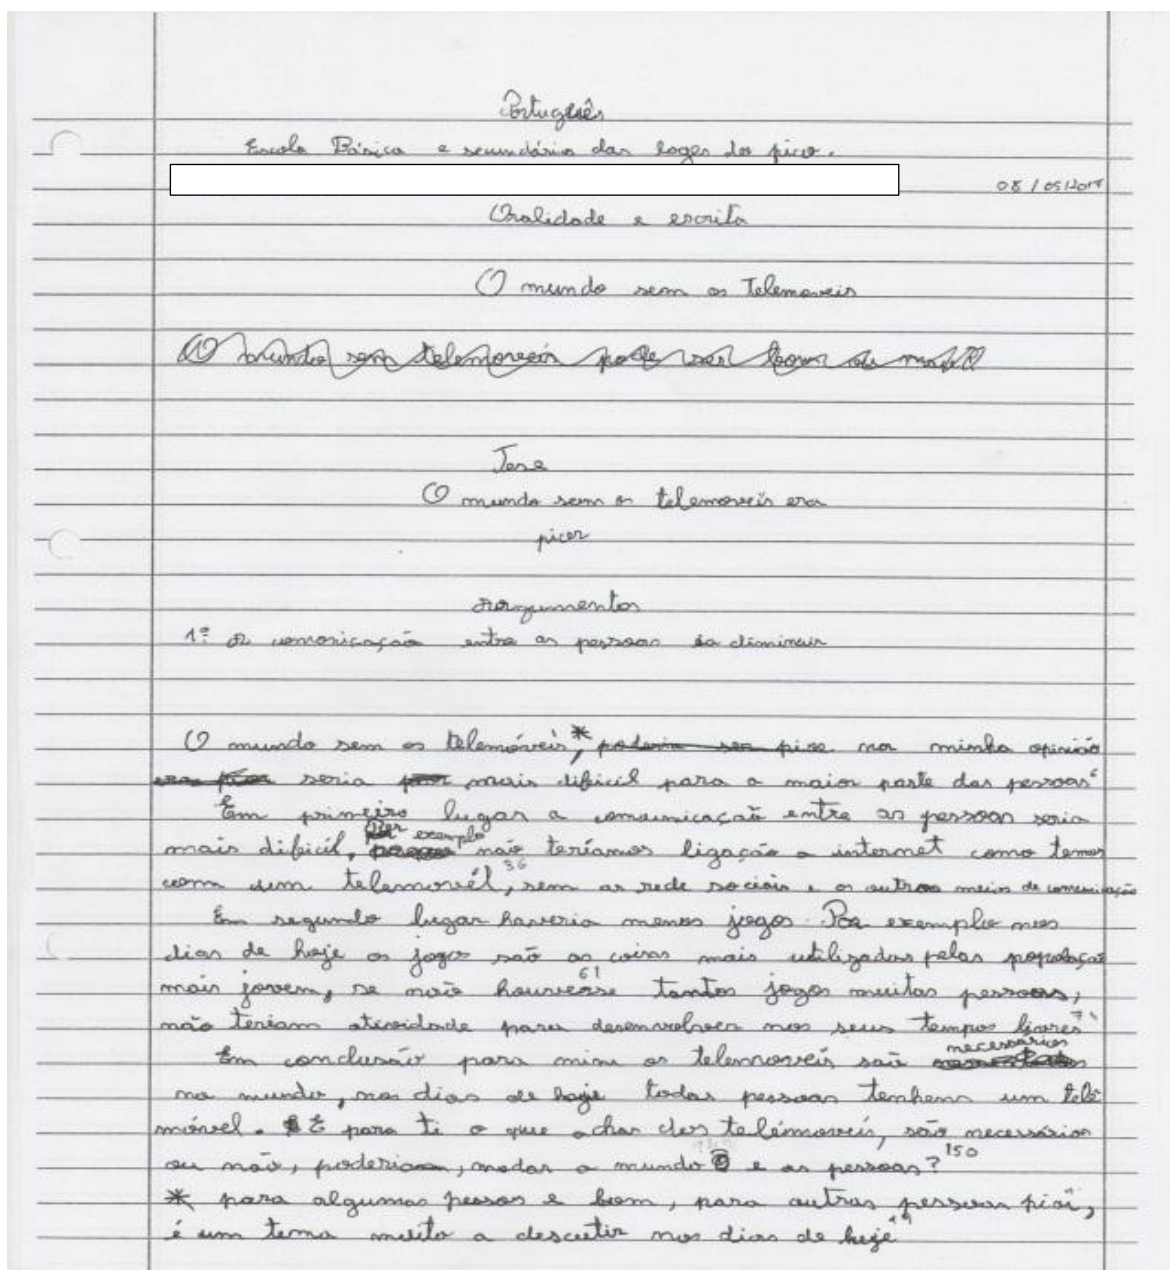 Português
Escola Básica e secundário das lages do pico.
08/05/2017
Oralidade e escrita
O mundo sem os Telemoveis
O mundo sem telemoveis pode ser bom de
Tese
O mundo sem os telemoveis era
pior
Argumentos
1º A comonicação entre as pessoas ia diminuir
O mundo sem os telemóveis,* poderia ser pior na minha opinião
era pior seria mais dificil para a maior parte das pessoas
Em primeiro lugar a comunicação entre as pessoas seria
Por exemplo
mais dificil, não teríamos ligação a internet como temos
36
com um telemovél, sem as rede sociais e os outros meios de comunicação
Em segundo lugar haveria menos jogos. Por exemplo nos
dias de hoje os jogos são as coisas mais utilizadas pelas população
61
mais jovem, se não houvesse tantos jogos muitas pessoas,
não teriam atividade para desenvolver nos seus tempos livres
necessários
Em conclusão para mim os telemoveis saõ
no mundo, nos dias de hoje todas pessoas tenhem um tele
móvel. E para ti o que achas dos telémoveis, são necessários
ou não, poderiam, mudar o mundo e as pessoas? 150
* para algumas pessoas e bom, para outras pessoas
é um tema muito a descutir nos dias de hoje